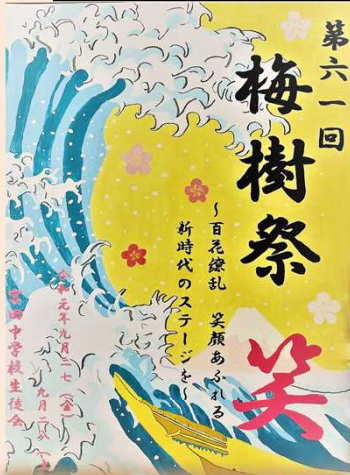 第六一回
梅樹祭
笑
~百花繚乱 笑顔あふれる
新時代のステージを~
令和元年九月二七(金)
九月二八(土)
田中学校生徒会